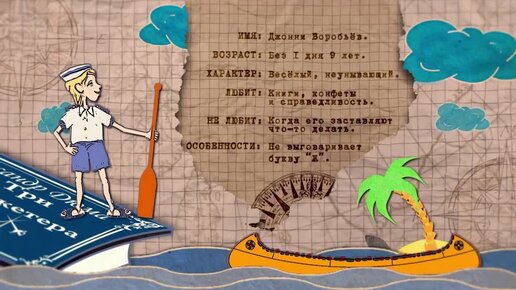 ИМЯ: Джонни Воробьёв.
ВОЗРАСТ: Без 1 дня 9 лет.
ХАРАКТЕР: Весёлый, неунывающий.
ЛЮБИТ: Книги, конфеты
и справедливость.
НЕ ЛЮБИТ: Когда его заставляют
что-то делать.
ОСОБЕННОСТИ: Не выговаривает
букву
Три